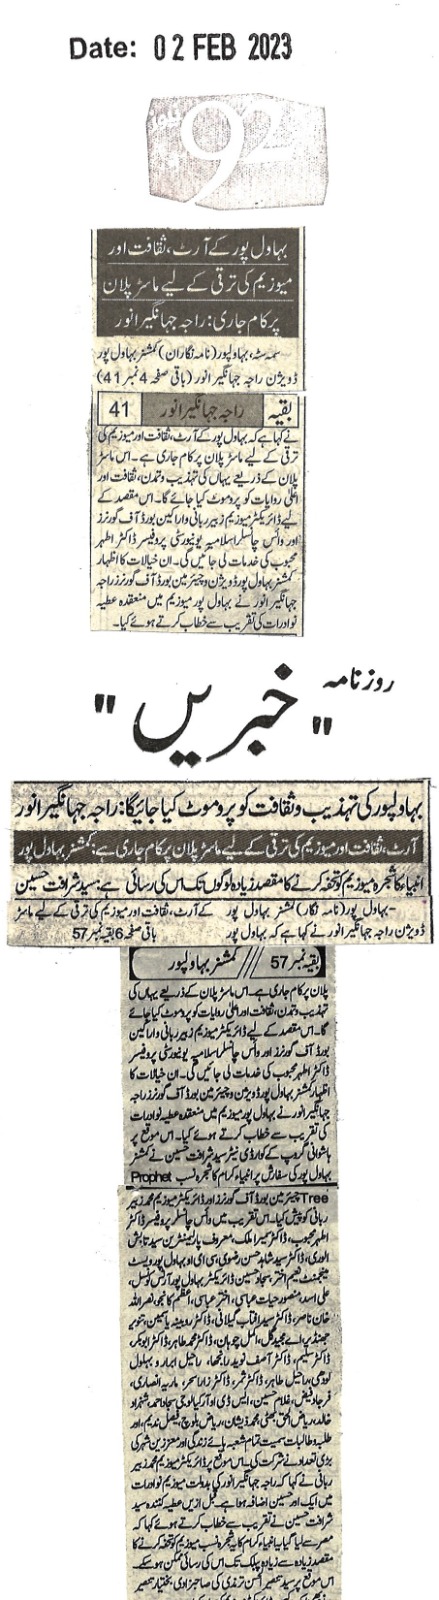 Date: 02 FEB 2023
92
نیوز
بہاول پور کے آرٹ، ثقافت اور
میوزیم کی ترقی کے لیے ماسٹر پلان
پر کام جاری: راجہ جہانگیر انور
سمہ سٹہ، بہاولپور (نامہ نگاران) کمشنر بہاول پور
ڈویژن راجہ جہانگیر انور (باقی صفحہ 4 نمبر 41)
بقیہ راجہ جہانگیر انور 41
نے کہا ہے کہ بہاول پور کے آرٹ، ثقافت اور میوزیم کی
ترقی کے لیے ماسٹر پلان پر کام جاری ہے۔ اس ماسٹر
پلان کے ذریعے یہاں کی تہذیب و تمدن، ثقافت اور
اعلیٰ روایات کو پروموٹ کیا جائے گا۔ اس مقصد کے
لیے ڈائریکٹر میوزیم زبیر ربانی و اراکین بورڈ آف گورنرز
اور وائس چانسلر اسلامیہ یونیورسٹی پروفیسر ڈاکٹر اطہر
محبوب کی خدمات لی جائیں گی۔ ان خیالات کا اظہار
کمشنر بہاول پور ڈویژن و چیئرمین بورڈ آف گورنرز راجہ
جہانگیر انور نے بہاول پور میوزیم میں منعقدہ عطیہ
نوادرات کی تقریب سے خطاب کرتے ہوئے کیا۔
روزنامہ
"خبریں"
بہاولپور کی تہذیب و ثقافت کو پروموٹ کیا جائیگا: راجہ جہانگیر انور
آرٹ، ثقافت اور میوزیم کی ترقی کے لیے ماسٹر پلان پر کام جاری ہے: کمشنر بہاول پور
انبیاء کا شجرہ میوزیم کو تحفہ کرنے کا مقصد زیادہ لوگوں تک اس کی رسائی ہے: سید شرافت حسین
بہاول پور (نامہ نگار) کمشنر بہاول پور
ڈویژن راجہ جہانگیر انور نے کہا ہے کہ بہاول پور
کے آرٹ، ثقافت اور میوزیم کی ترقی کے لیے ماسٹر
باقی صفحہ 6 بقیہ نمبر 57
بقیہ نمبر 57 /// کمشنر بہاولپور
پلان پر کام جاری ہے۔ اس ماسٹر پلان کے ذریعے یہاں کی
تہذیب و تمدن، ثقافت اور اعلیٰ روایات کو پروموٹ کیا جائے
گا۔ اس مقصد کے لیے ڈائریکٹر میوزیم زبیر ربانی و اراکین
بورڈ آف گورنرز اور وائس چانسلر اسلامیہ یونیورسٹی پروفیسر
ڈاکٹر اطہر محبوب کی خدمات لی جائیں گی۔ ان خیالات کا
اظہار کمشنر بہاول پور ڈویژن و چیئرمین بورڈ آف گورنرز راجہ
جہانگیر انور نے بہاول پور میوزیم میں منعقدہ عطیہ نوادرات
کی تقریب سے خطاب کرتے ہوئے کیا۔ اس موقع پر
ہاشوانی گروپ کے کوارڈی نیٹر سید شرافت حسین نے کمشنر
بہاول پور کی سفارش پر انبیاء کرام کا شجرہ نسب Prophet
Tree چیئرمین بورڈ آف گورنرز اور ڈائریکٹر میوزیم محمد زبیر
ربانی کو پیش کیا۔ اس تقریب میں وائس چانسلر پروفیسر ڈاکٹر
اطہر محبوب، ڈاکٹر سمیرا ملک، معروف پارلیمنٹرین سید تابش
الوری، ڈاکٹر سید شاہد حسن رضوی، سی ای او بہاول پور ویسٹ
مینجمنٹ نعیم اختر، سجاد حسین ڈائریکٹر بہاول پور آرٹس کونسل،
علی اسد، منصور حیات عباسی، اختر عباسی، اعظم کانجو، نصراللہ
خان ناصر، ڈاکٹر سید آفتاب گیلانی، ڈاکٹر روبینہ یاسمین، تنویر
جھنڈیر، اے مجید گل، اکمل چوہان، ڈاکٹر محمد طاہر، ڈاکٹر ابوبکر،
ڈاکٹر سلیم، ڈاکٹر آصف نوید رانجھا، راحیل ابرار و بہلول
لودھی، راحیل طاہر، ڈاکٹر ثمر، ڈاکٹر زارا سحر، ماریہ انصاری،
فرجاد فیض، غلام حسین، ایس ڈی او آرکیالوجی سجاد احمد، شہزاد
خالد، ریاض الحق بھٹی، محمد ذیشان، ریاض بلوچ، فیصل ندیم، اور
طلبہ و طالبات سمیت تمام شعبہ ہائے زندگی اور معززین شہر کی
بڑی تعداد نے شرکت کی۔ اس موقع پر ڈائریکٹر میوزیم محمد زبیر
ربانی نے کہا کہ راجہ جہانگیر انور کی بدولت میوزیم نوادرات
میں ایک اور حسین اضافہ ہوا ہے۔ قبل ازیں عطیہ کنندہ سید
شرافت حسین نے تقریب سے خطاب کرتے ہوئے کہا کہ
مصر سے لیا گیا یہ انبیاء کرام کا یہ شجرہ نسب میوزیم کو تحفہ کرنے کا
مقصد زیادہ سے زیادہ پبلک تک اس کی رسائی ممکن ہو سکے۔
اس موقع پر سید عصیر الحسن ترمذی کی صاحبزادی بختیار عصیر